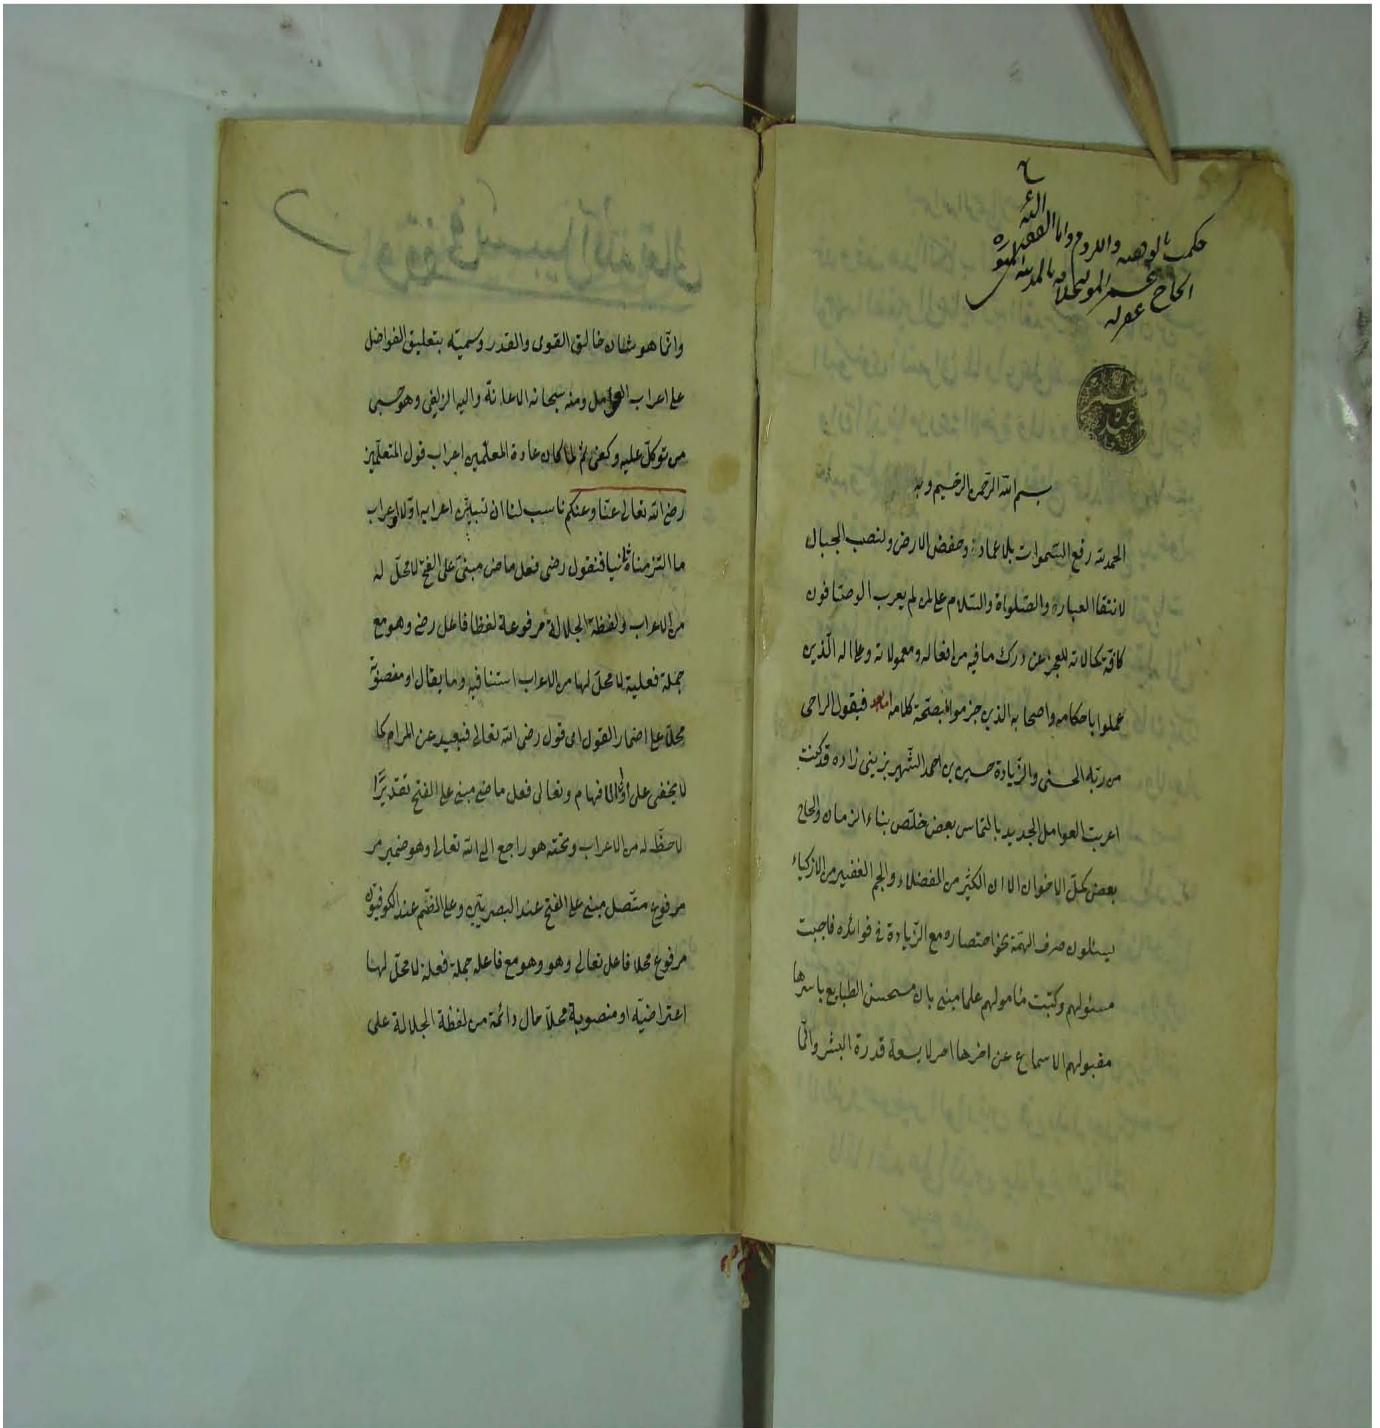 بسم الله الرحمن الرحيم وبه
الحمد لله رفع السموات بلا عماد وخفض الارض ونصب الجبال
لانتقا العباره والصلواة والسلام على من لم يعرب الوصافون
كافة كمالاته للعجز عن درك ما فيه من افعاله ومعمولاته وعلى اله الذين
عملوا باحكامه واصحابه الذين جزموا بصحة كلامه اما بعد فيقول الراجى
من ربه الحسنى والزيادة حسين بن احمد الشهير بزينى زاده قد كنت
اعربت العوامل الجديد بالتماس بعض خلص بناء الزمان والحاح
بعض كمل الاخوان الا ان الكثير من الفضلاء والجم الغفير من الازكياء
يسئلون صرف الهمة نحو اختصاره مع الزيادة فى فوائده فاجبت
مسئولهم وكتبت مأمولهم علما منى بان مستحسن الطبايع باسرها
مقبولهم الاسماع عن اخرها امر لا يسعه قدرة البشر وانما
وقف فى سبيل الله تعالى
وانما هو شان خالق القوى والقدر وسميته بتعليق الفواضل
على اعراب العوامل ومنه سبحانه الاعانة واليه الزلفى وهو حسبى
من توكل عليه وكفى ثم لما كان عادة المعلمين اعراب قول المتعلمين
رضى الله تعالى عنا وعنكم ناسب لنا ان نبين اعرابه اولا واعراب
ما التزمناه ثانيا فنقول رضى فعل ماض مبنى على الفتح لا محل له
من الاعراب ولفظة الجلالة مرفوعة لفظا فاعل رضى وهو مع
جملة فعلية لا محل لها من الاعراب استئنافية وما يقال او منصوبة
محلا على اضمار القول اى قول رضى الله تعالى فبعيد عن المرام كما
لا يخفى على اولى الافهام وتعالى فعل ماض مبنى على الفتح تقديرا
لا حظ له من الاعراب وتحته هو راجع الى الله تعالى وهو ضمير مر
مرفوع متصل مبنى على الفتح عند البصريين وعلى الضم عند الكوفيون
مرفوع محلا فاعل تعالى وهو وهو مع فاعله جملة فعلة لا محل لها
اعتراضية او منصوبة محلا حال دائمة من لفظة الجلالة على